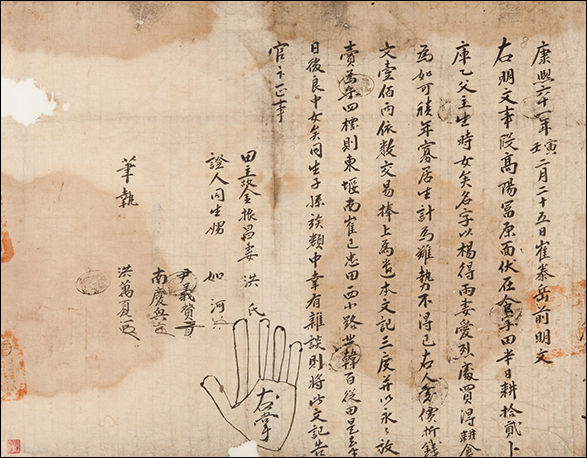 康熙六十一年壬寅二月二十五日崔泰岳前明文
右明文事段高陽冨原面伏在字田半日耕拾貳卜
庫乙父主生時女矣名字以楊得雨妻愛烈處買得耕食
為如可積年寡居生計為難勢不得已右人處價折錢
文壹佰兩依數交易捧上為遣本文記三度并以永〻放
賣為乎四標則東堰南崔已忠田西小路北韓百從田是去乎
日後良中女矣同生子孫族類中幸有雜談則將此文記告
官卞正事
田主金振昌妻 洪氏
右掌
證人同生娚 如河
尹義賢
南慶興
筆執 洪萬夏